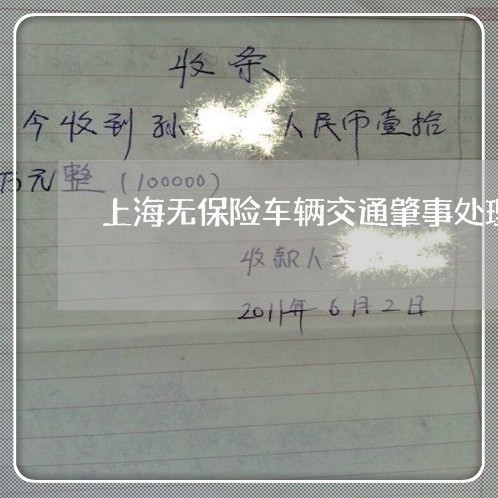 收条
今收到孙 人民币壹拾
万元整(100000)
上海无保险车辆交通肇事处理
收款人
2011年6月2日